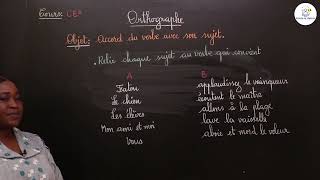 Cours: CE2
Orthographe
Objet: Accord du verbe avec son sujet.
• Relie chaque sujet au verbe qui convient
A B
Fatou applaudissez le vainqueur
Le chien écoutent le maître
Les élèves allons à la plage
Mon ami et moi lave la vaisselle
Vous aboie et mord le voleur